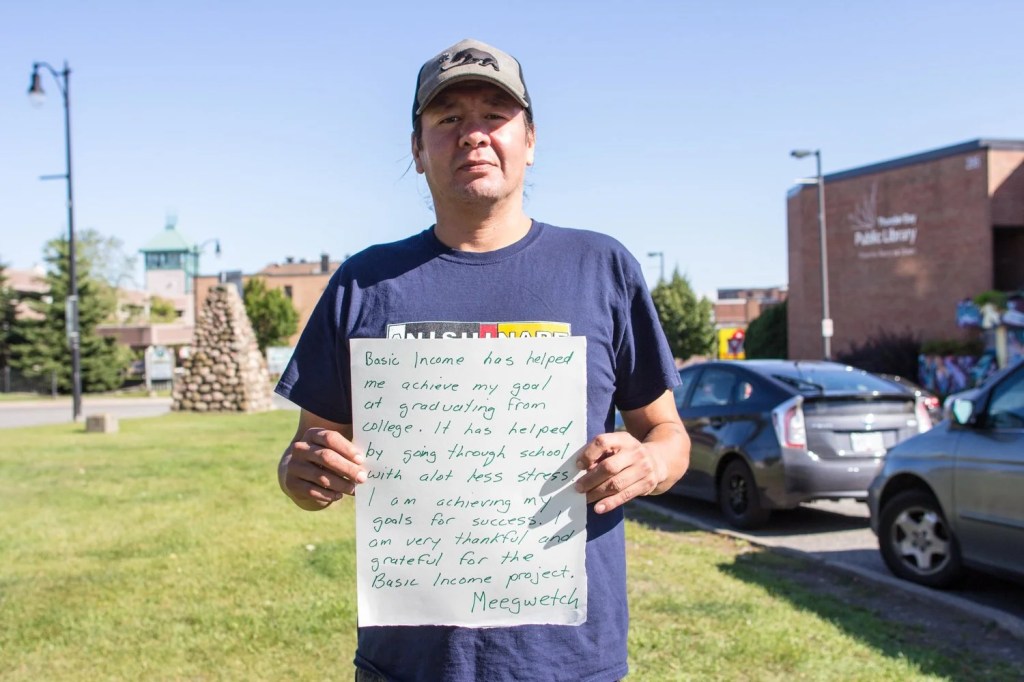 Thunder Bay
Public Library
ANISHINABE
Basic Income has helped
me achieve my goal
at graduating from
college. It has helped
by going through school
with alot less stress.
I am achieving my
goals for success. I
am very thankful and
grateful for the
Basic Income project.
Meegwetch